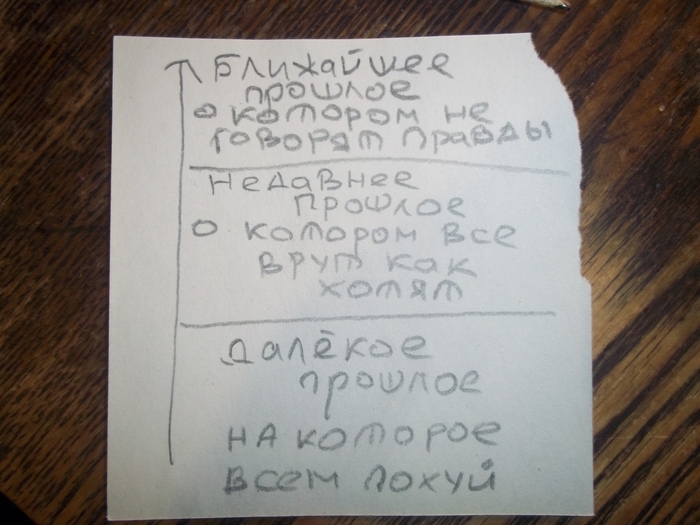 Ближайшее
прошлое
о котором не
говорят правды
Недавнее
прошлое
о котором все
врут как
хотят
далёкое
прошлое
на которое
всем похуй